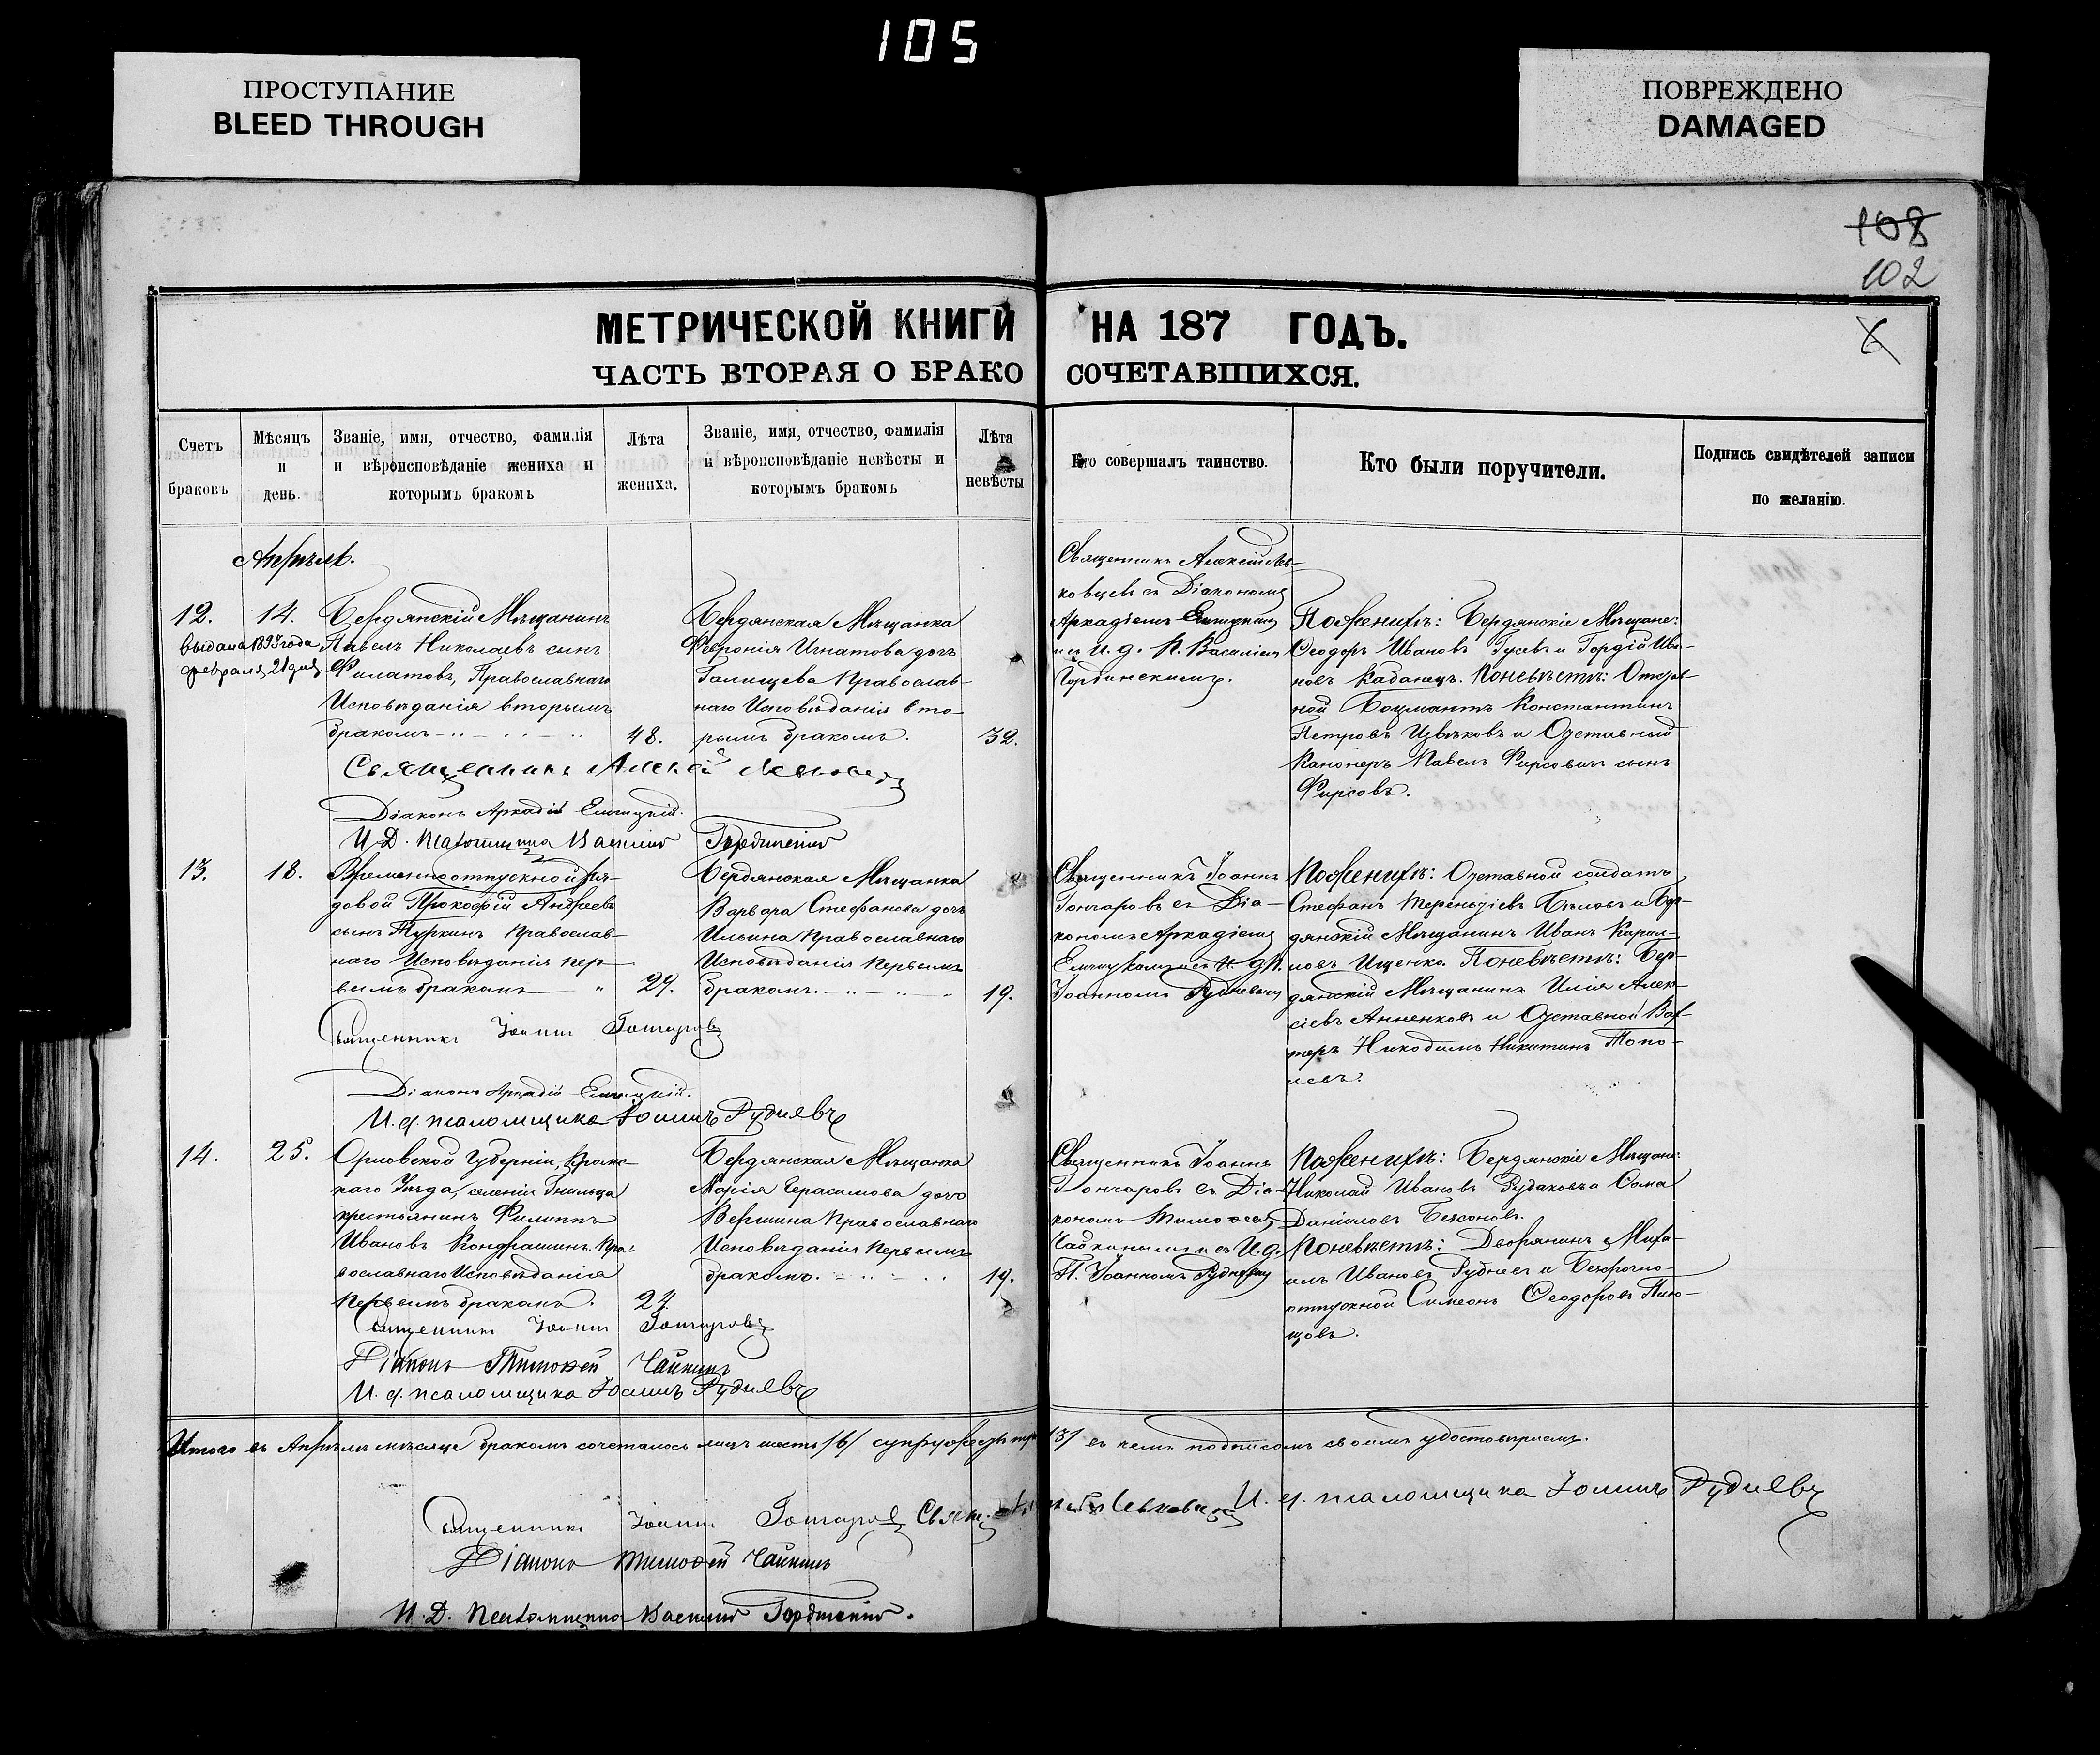 105
ПРОСТУПАНИЕ
BLEED THROUGH
ПОВРЕЖДЕНО
DAMAGED
108
102
МЕТРИЧЕСКОЙ КНИГИ НА 187 ГОДЪ.
ЧАСТЬ ВТОРАЯ О БРАКОСОЧЕТАВШИХСЯ.
Счетъ браковъ
Мѣсяцъ и день.
Званіе, имя, отчество, фамилія
и вѣроисповѣданіе жениха и
которымъ бракомъ
Лѣта жениха.
Званіе, имя, отчество, фамилія
и вѣроисповѣданіе невѣсты и
которымъ бракомъ
Лѣта невѣсты
Кто совершалъ таинство.
Кто были поручители.
Подпись свидѣтелей записи
по желанію.
Апрѣль.
12.
выдана 1893 года
февраля 21 дня
14.
Бердянскій Мѣщанинъ
Павелъ Николаевъ сынъ
Филатовъ, Православнаго
Исповѣданія вторымъ
бракомъ
48.
Бердянская Мѣщанка
Февронія Игнатова дочь
Галищева Православ-
наго Исповѣданія вто-
рымъ бракомъ.
32.
Священникъ Алексій Лев-
ковцевъ съ Діакономъ
Аркадіемъ
и съ И. д. П. Василіем
Гординскимъ.
По женихѣ: Бердянскіе Мѣщане:
Ѳеодоръ Ивановъ Гусевъ и Гордій Ива-
новъ Кабанецъ. По невѣстѣ: Отстав-
ной Боцманъ Константинъ
Петровъ Извѣковъ и Отставный
Канонеръ Павелъ Фирсовъ сынъ
Фирсовъ.
Священникъ Алексій
Діаконъ Аркадій
И. Д. Псаломщика Василій Гординскій
13.
18.
Временно отпускной ря-
довой Прокофій Андреевъ
сынъ Туркинъ Православ-
наго Исповѣданія пер-
вымъ бракомъ "
29.
Бердянская Мѣщанка
Варвара Стефанова дочь
Ильина Православнаго
Исповѣданія первымъ
бракомъ.
19.
Священникъ Іоаннъ
Гончаровъ съ Діа-
кономъ Аркадіемъ
и съ И. д. П.
Іоанномъ Рудневымъ
По женихѣ: Отставной солдатъ
Стефанъ Терентіевъ Бѣловъ и Бер-
дянскій Мѣщанинъ Иванъ
Ищенко. По невѣстѣ: Бер-
дянскій Мѣщанинъ Илія Алек-
сіевъ Анненковъ и Отставной Вах-
теръ Никодимъ Никитинъ Топо-
левъ.
Священникъ Іоаннъ Гончаровъ
Діаконъ Аркадій
И. д. псаломщика Іоаннъ Рудневъ
14.
25.
Орловской Губерніи, Кромс-
каго Уѣзда, селенія Гнильца
крестьянинъ Филиппъ
Ивановъ Кондрашинъ. Пра-
вославнаго Исповѣданія
Первымъ бракомъ.
24.
Бердянская Мѣщанка
Марія Герасимова дочь
Вершина Православнаго
Исповѣданія Первымъ
бракомъ.
19.
Священникъ Іоаннъ
Гончаровъ съ Діа-
кономъ Тимоѳеемъ
Чайкинымъ и съ И. д.
П. Іоанномъ Рудневымъ
По женихѣ: Бердянскіе Мѣщане:
Николай Ивановъ Рудаковъ и Ѳома
Даніиловъ
По невѣстѣ: Дворянинъ Миха-
илъ Ивановъ Рудневъ и Безсрочно-
отпускной Симеонъ Ѳеодоровъ
Священникъ Іоаннъ Гончаровъ
Діаконъ Тимоѳей Чайкинъ
И. д. псаломщика Іоаннъ Рудневъ
Итого въ Апрѣлѣ мѣсяцѣ бракомъ сочеталось лицъ шесть /6/ супружествъ три /3/ въ чемъ подписомъ своимъ удостовѣряемъ.
Священникъ Іоаннъ Гончаровъ Свящ. И. д. псаломщика Іоаннъ Рудневъ
Діаконъ Тимоѳей Чайкинъ
И. Д. Псаломщика Василій Гординскій.